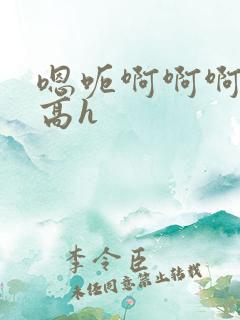 嗯呃啊啊啊
高h
李令臣
未经同意禁止转载